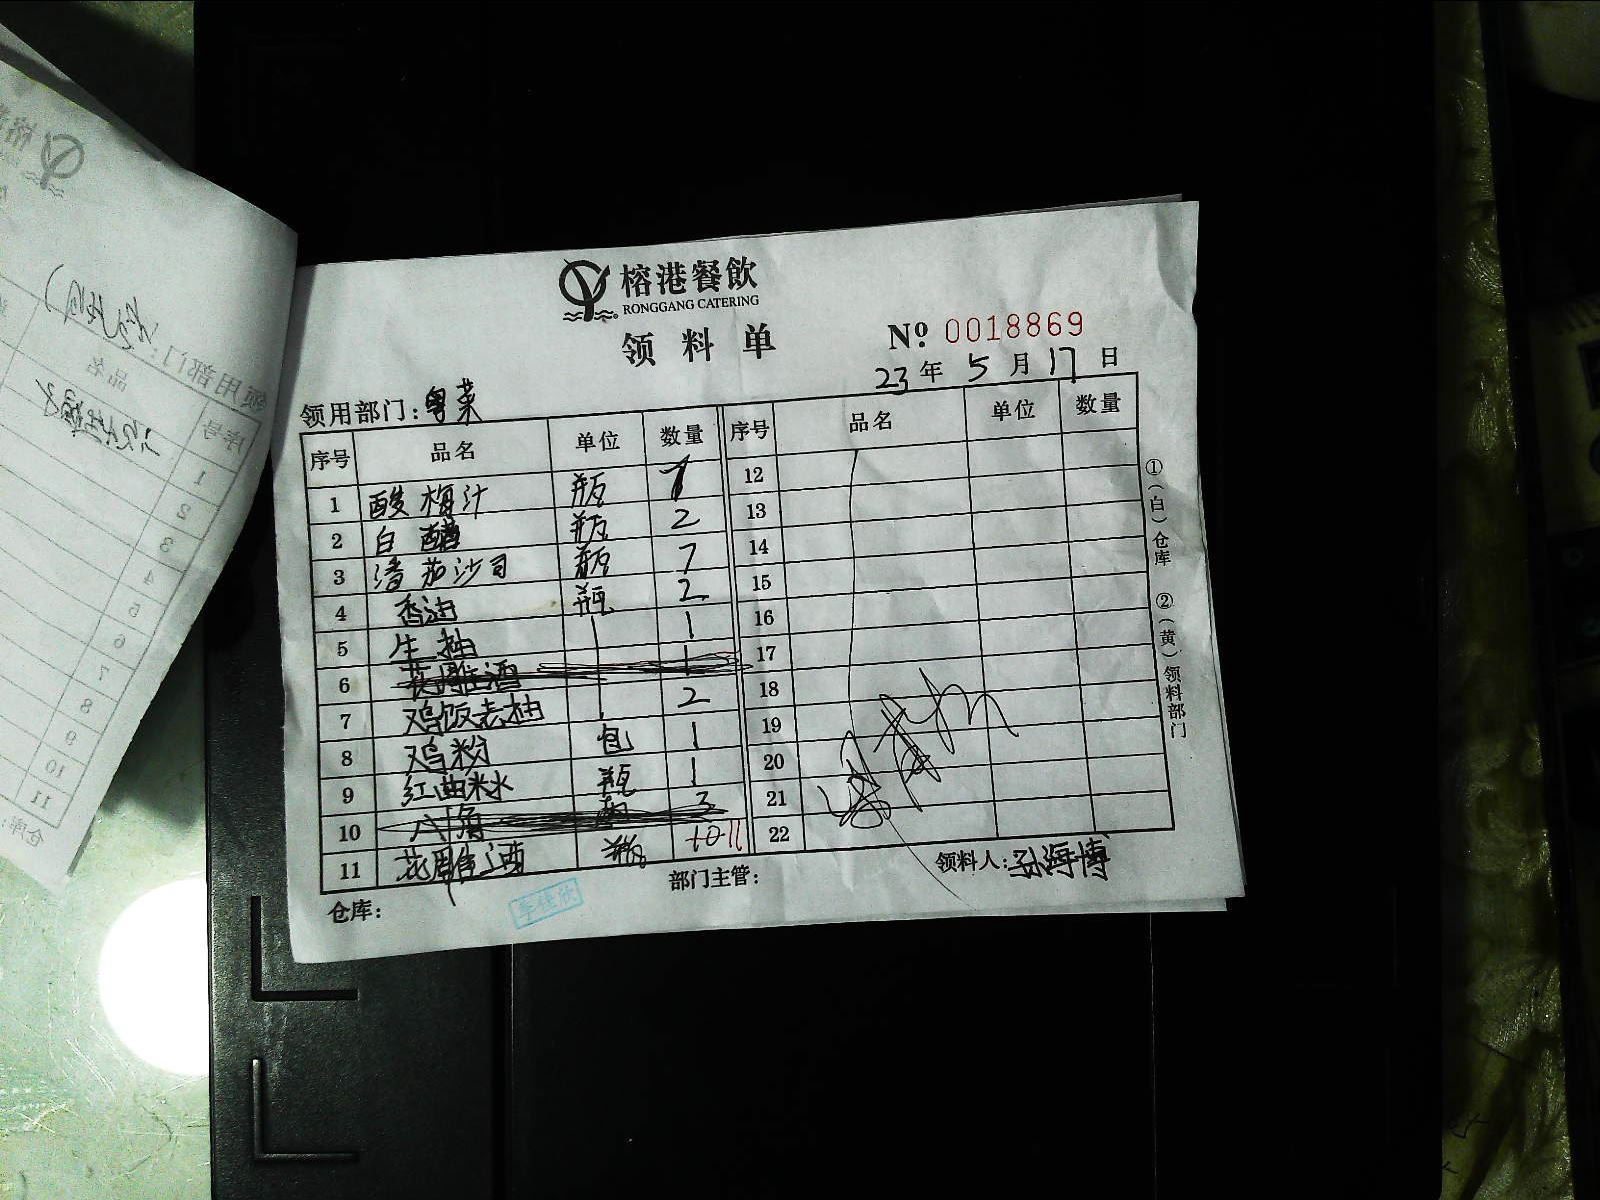 榕港餐飲
RONGGANG CATERING
领料单
№ 0018869
23年5月17日
领用部门:粤菜
序号 品名 单位 数量 序号 品名 单位 数量
1 酸梅汁 瓶 1 12
2 白醋 瓶 2 13
3 潘茄沙司 瓶 7 14
4 香油 瓶 2 15
5 生抽 | 1 16
6 花雕酒 | 1 17
7 鸡饭老抽 | 2 18
8 鸡粉 包 1 19
9 红曲米水 瓶 1 20
10 八角 3 21
11 花雕酒 瓶 22
①(白)仓库 ②(黄)领料部门
仓库: 李佳欣 部门主管: 领料人:孙海博
领用部门:
品名
序号
1
2
3
4
5
6
7
8
9
10
11
仓库: